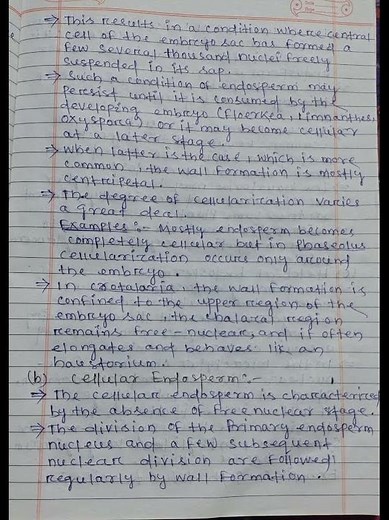 ⇒ This results in a condition where central
cell of the embryo sac has formed a
few several thousand nuclei freely
suspended in its sap.
⇒ Such a condition of endosperm may
persist until it is consumed by the
developing embryo (Floerkea, Limnanthes,
Oxyspora) or it may become cellular
at a later stage.
⇒ When latter is the case, which is more
common, the wall formation is mostly
centripetal.
⇒ The degree of cellularization varies
a great deal.
Examples :- Mostly endosperm becomes
completely cellular but in Phaseolus
cellularization occurs only around
the embryo.
⇒ In crotalaria, the wall formation is
confined to the upper region of the
embryo sac, the chalazal region
remains free-nuclear, and if often
elongates and behaves lik an
haustorium.
(b) Cellular Endosperm :-
⇒ The cellular endosperm is characterized
by the absence of free nuclear stage.
⇒ The division of the Primary endosperm
nucleus and a few subsequent
nuclear division are followed
regularly by wall formation.